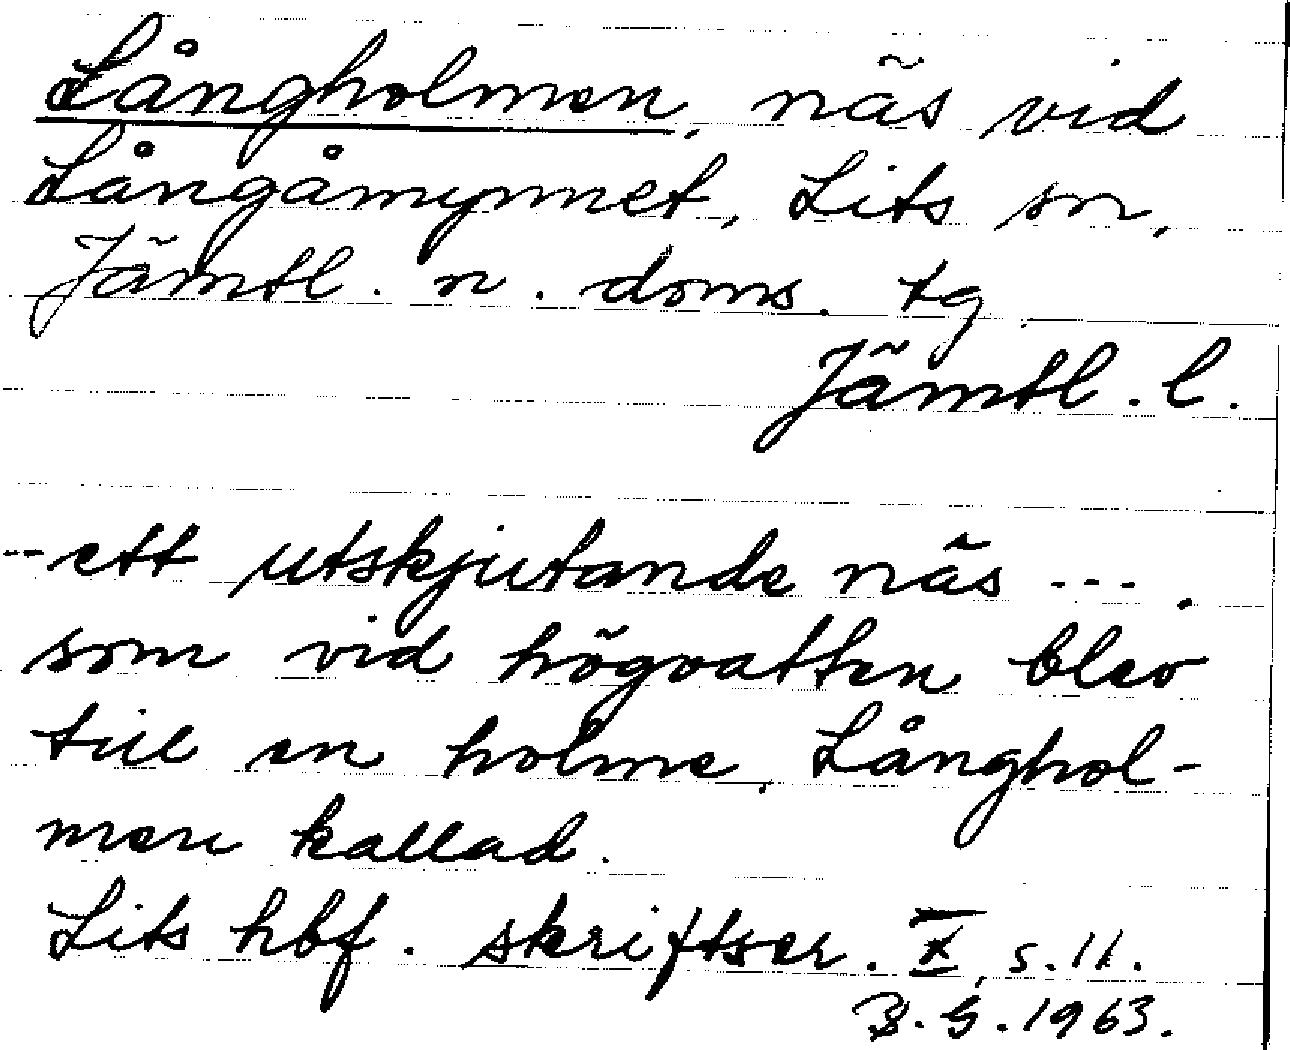 Långholmen, näs vid
Långåmynnet, Lits sn,
Jämtl. n. doms. tg
Jämtl. l.
-- ett utskjutande näs ---.
som vid högvatten blev
till en holme, Långhol-
men kallad.
Lits hbf. skriftser. X, s. 11.
B. G. 1963.